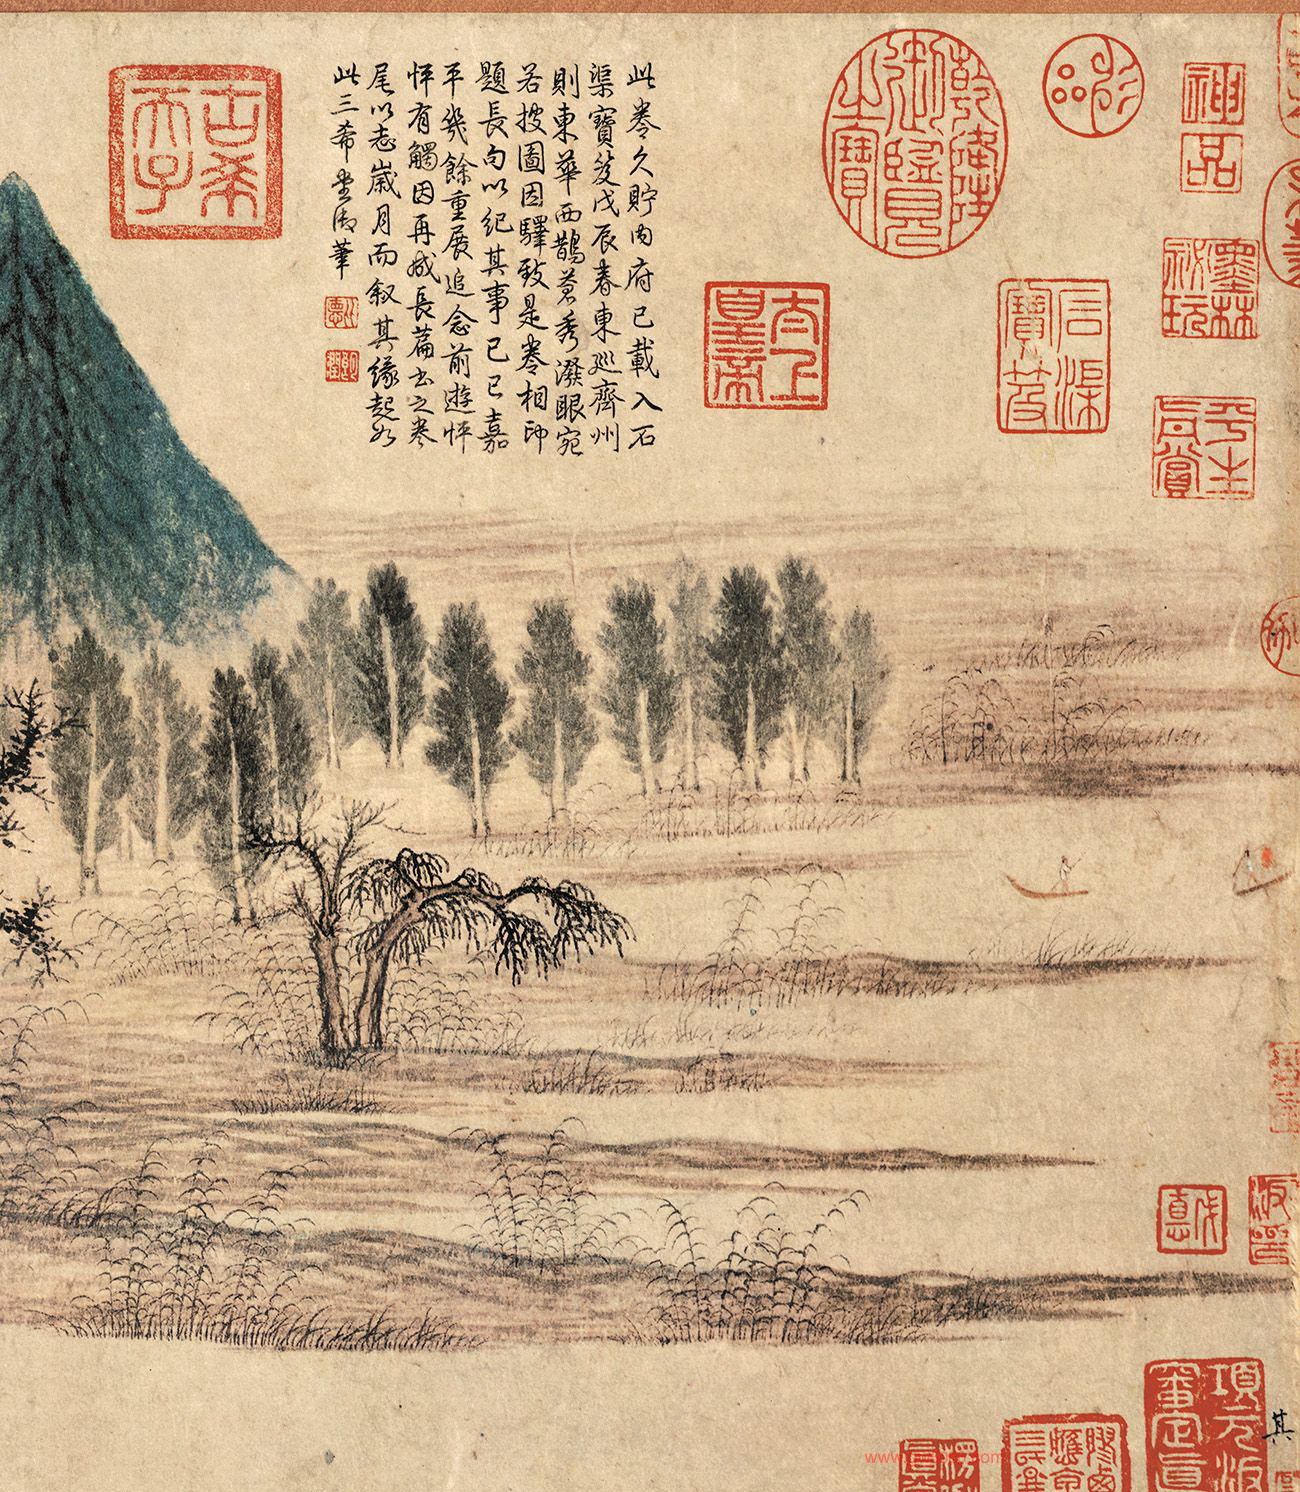 神品
墨林祕玩
平生真賞
乾隆御覽之寶
石渠寶笈
太上皇帝
此卷久貯内府已載入石
渠寶笈戊辰春東廵齊州
則東華西鵲蒼秀潑眼宛
若披圖因驛致是卷相印
題長句以紀其事己巳嘉
平幾餘重展追念前遊怦
怦有觸因再成長篇書之卷
尾以志歲月而叙其緣起如
此三希堂御筆
古希天子
其
項元汴